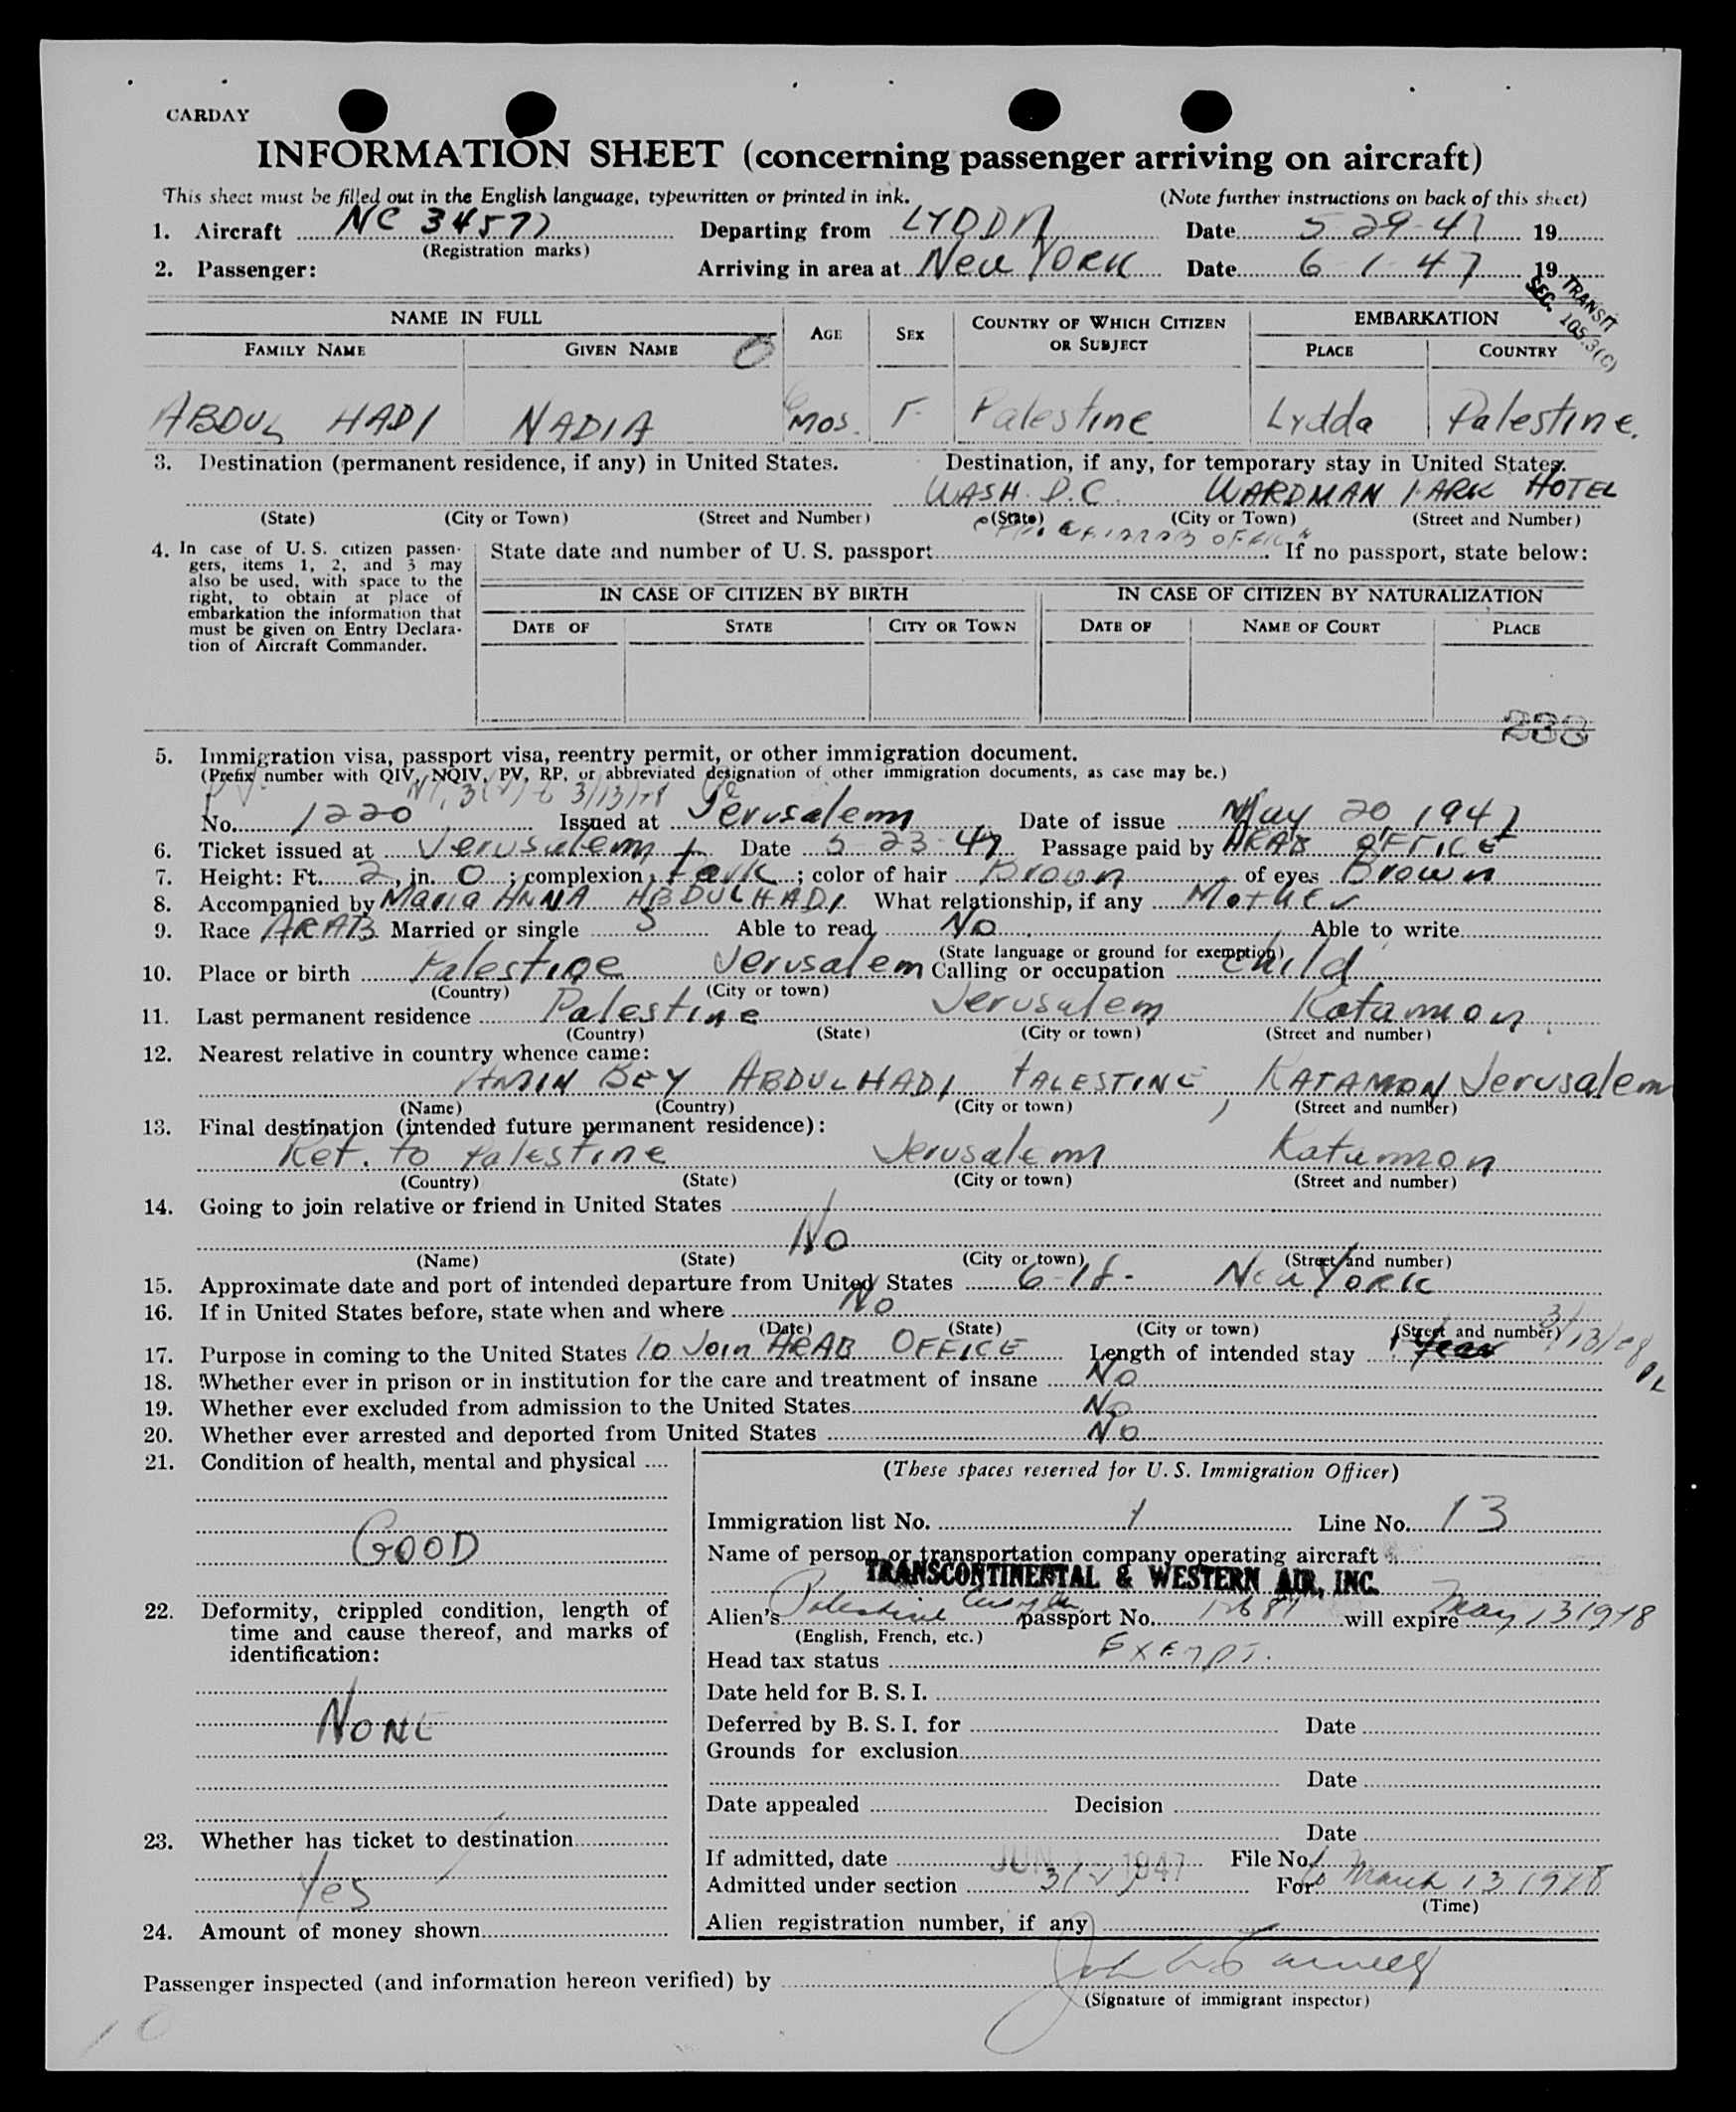 CARDAY
INFORMATION SHEET (concerning passenger arriving on aircraft)
This sheet must be filled out in the English language, typewritten or printed in ink. (Note further instructions on back of this sheet)
1. Aircraft NC 34577 Departing from LYDDA Date 5-29-47 19
(Registration marks)
2. Passenger: Arriving in area at New York Date 6-1-47 19
TRANSIT
SEC. 105.3(C)
NAME IN FULL AGE SEX COUNTRY OF WHICH CITIZEN OR SUBJECT EMBARKATION
FAMILY NAME GIVEN NAME PLACE COUNTRY
ABDUL HADI NADIA mos. F Palestine Lydda Palestine.
3. Destination (permanent residence, if any) in United States. Destination, if any, for temporary stay in United States.
WASH. D.C. WARDMAN PARK HOTEL
(State) (City or Town) (Street and Number) (State) (City or Town) (Street and Number)
ARAB OFFICE
4. In case of U.S. citizen passengers, items 1, 2, and 3 may also be used, with space to the right, to obtain at place of embarkation the information that must be given on Entry Declaration of Aircraft Commander.
State date and number of U. S. passport If no passport, state below:
IN CASE OF CITIZEN BY BIRTH IN CASE OF CITIZEN BY NATURALIZATION
DATE OF STATE CITY OR TOWN DATE OF NAME OF COURT PLACE
238
5. Immigration visa, passport visa, reentry permit, or other immigration document.
(Prefix number with QIV, NQIV, PV, RP, or abbreviated designation of other immigration documents, as case may be.)
PV 3(2) to 3/13/48
No. 1220 Issued at Jerusalem Date of issue May 20, 1947
6. Ticket issued at Jerusalem Date 5-23-47 Passage paid by ARAB OFFICE
7. Height: Ft. 2, in. 0; complexion Dark; color of hair Brown of eyes Brown
8. Accompanied by Maria ANNA ABDULHADI What relationship, if any Mother
9. Race ARAB Married or single S Able to read No Able to write
(State language or ground for exemption)
10. Place or birth Palestine Jerusalem Calling or occupation child
(Country) (City or town)
11. Last permanent residence Palestine Jerusalem Katamon
(Country) (State) (City or town) (Street and number)
12. Nearest relative in country whence came:
AMIN BEY ABDULHADI PALESTINE, KATAMON Jerusalem
(Name) (Country) (City or town) (Street and number)
13. Final destination (intended future permanent residence):
Ret. to Palestine Jerusalem Katamon
(Country) (State) (City or town) (Street and number)
14. Going to join relative or friend in United States
No
(Name) (State) (City or town) (Street and number)
15. Approximate date and port of intended departure from United States 6-18- New York
16. If in United States before, state when and where No
(Date) (State) (City or town) (Street and number)
3/13/48
17. Purpose in coming to the United States To Join ARAB OFFICE Length of intended stay 1 year
18. Whether ever in prison or in institution for the care and treatment of insane No
19. Whether ever excluded from admission to the United States No
20. Whether ever arrested and deported from United States No
21. Condition of health, mental and physical
GOOD
22. Deformity, crippled condition, length of time and cause thereof, and marks of identification:
NONE
23. Whether has ticket to destination
Yes
24. Amount of money shown
(These spaces reserved for U. S. Immigration Officer)
Immigration list No. 1 Line No. 13
Name of person or transportation company operating aircraft
TRANSCONTINENTAL & WESTERN AIR, INC.
Alien's Palestine passport No. will expire May 13 1948
(English, French, etc.)
Head tax status EXEMPT.
Date held for B. S. I.
Deferred by B. S. I. for Date
Grounds for exclusion
Date
Date appealed Decision
Date
If admitted, date JUN 1947 File No.
Admitted under section 3(2) For to March 13 1948
(Time)
Alien registration number, if any
Passenger inspected (and information hereon verified) by
(Signature of immigrant inspector)
10